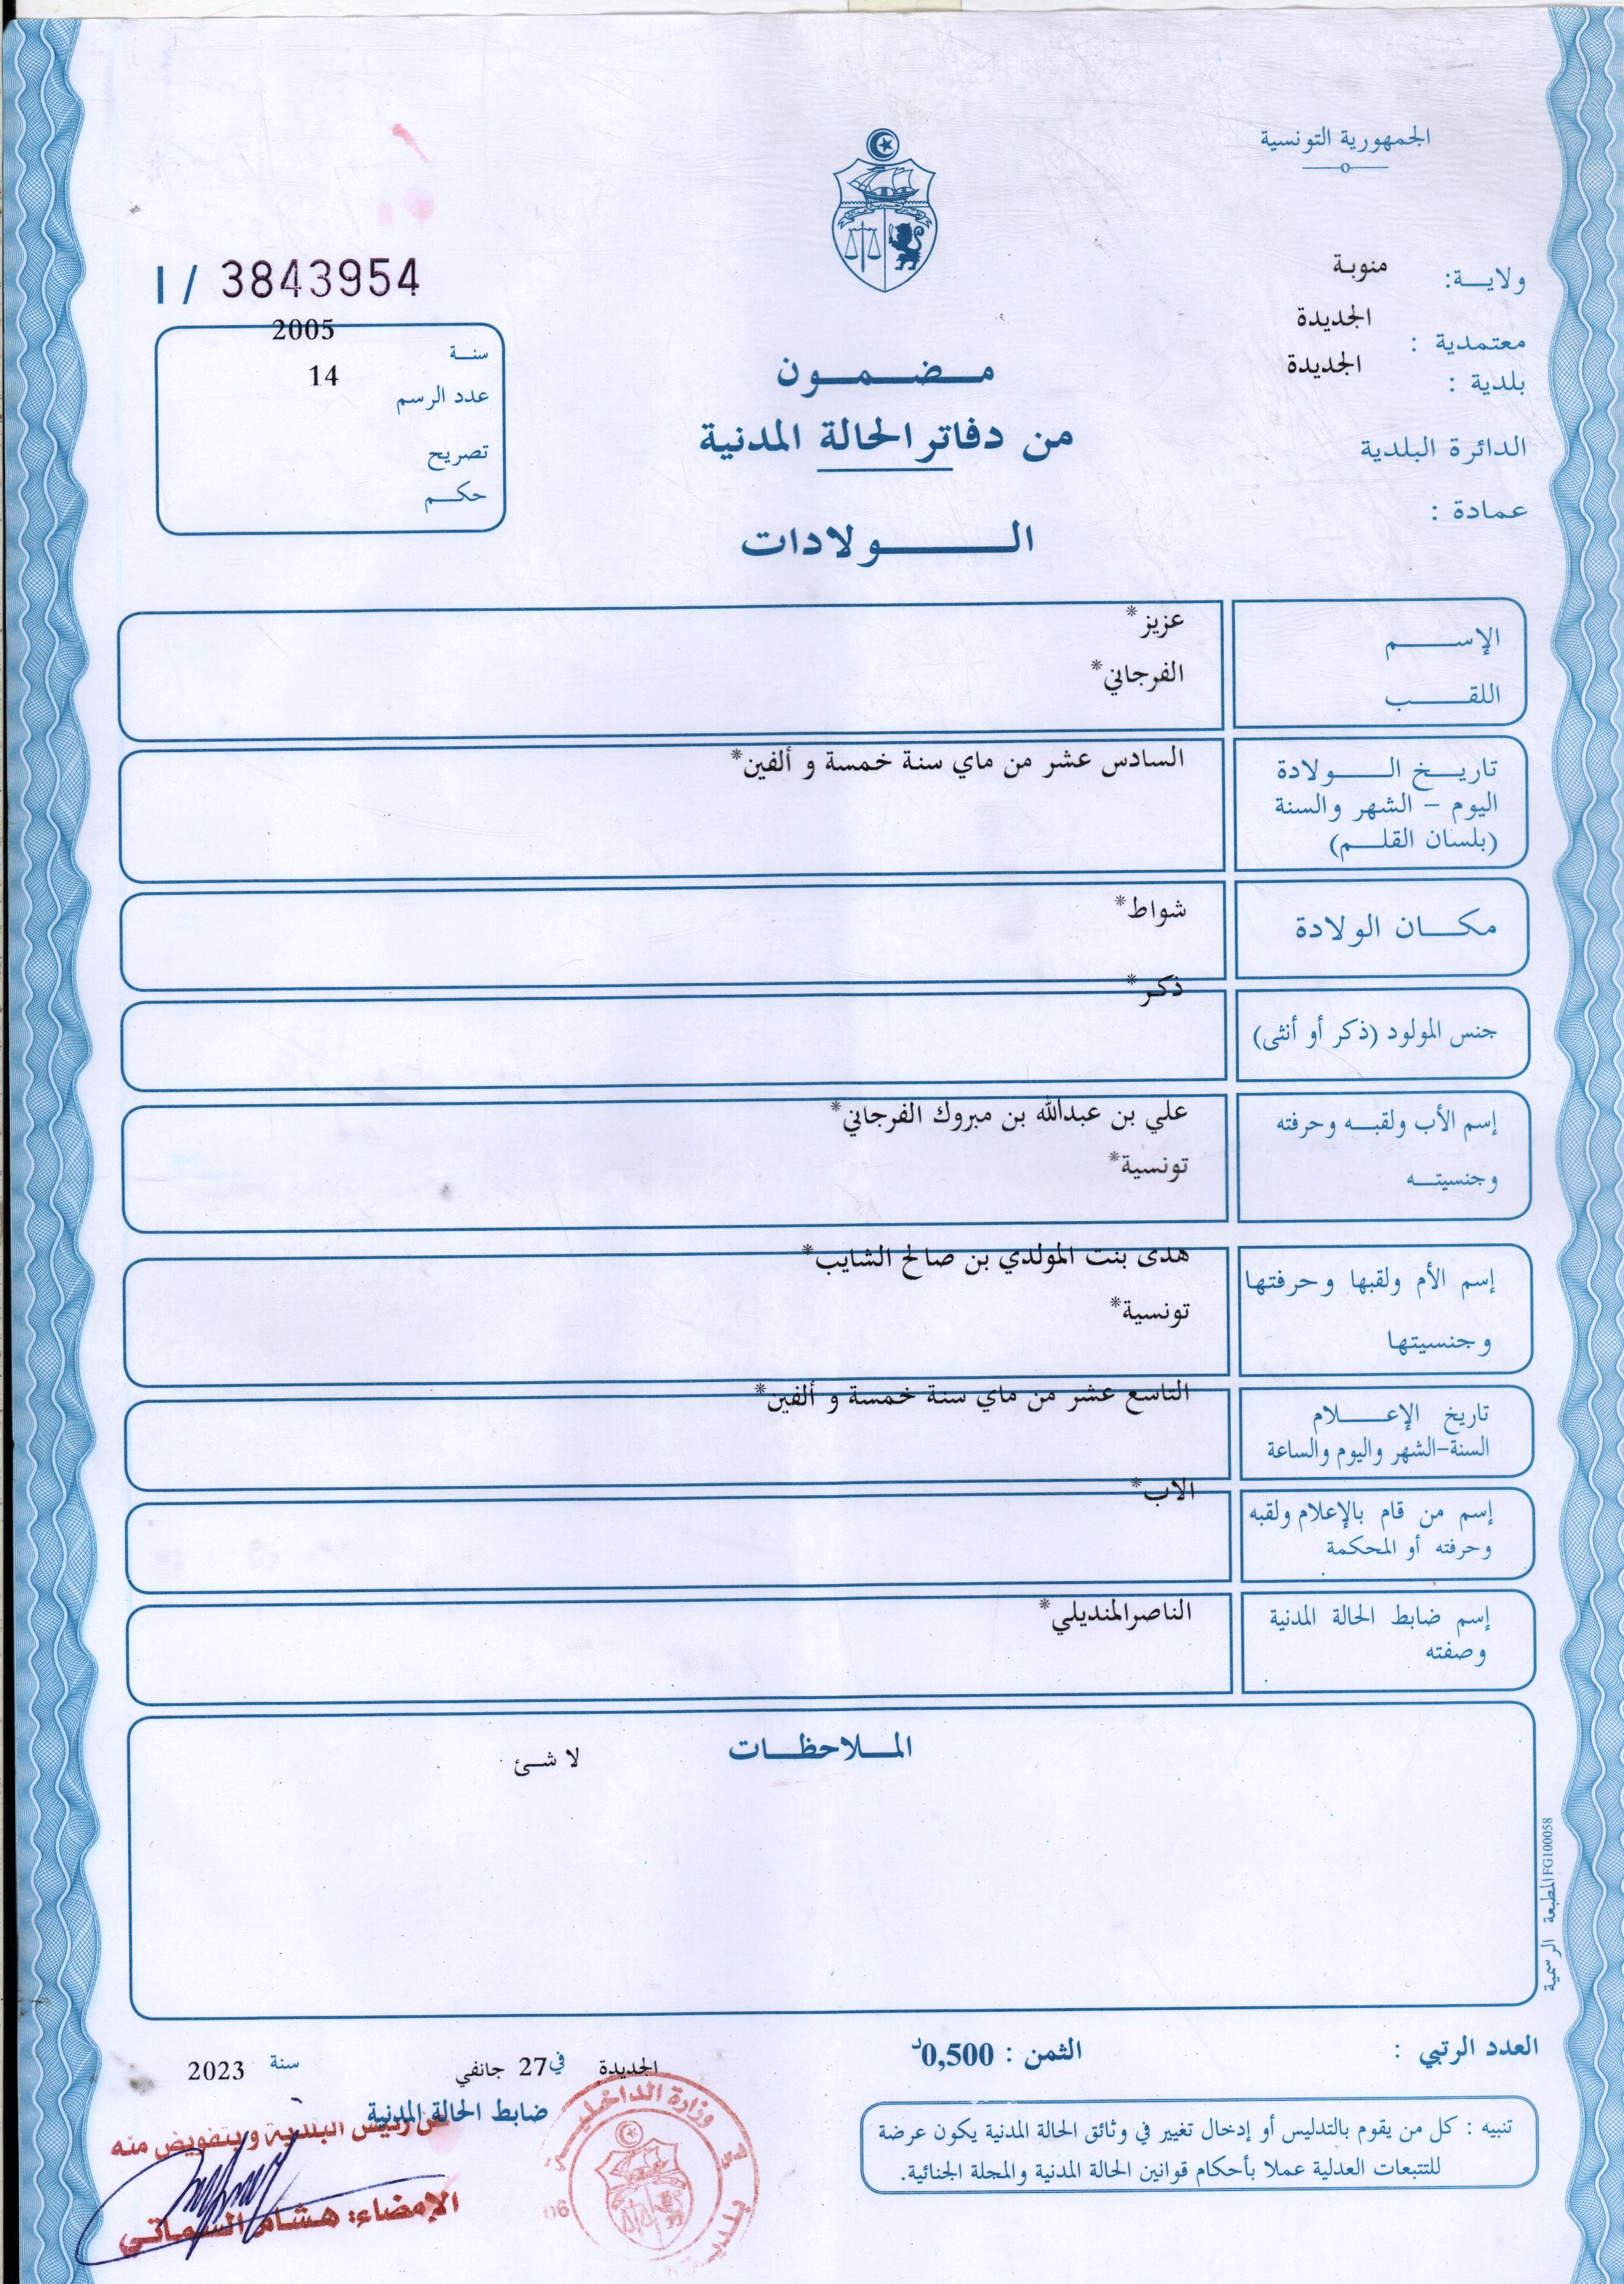 الجمهورية التونسية
ولاية: منوبة
معتمدية : الجديدة
بلدية : الجديدة
الدائرة البلدية
عمادة :
I / 3843954
سنة 2005
عدد الرسم 14
تصريح
حكم
مضمون
من دفاتر الحالة المدنية
الولادات
الإسم عزيز*
اللقب الفرجاني*
تاريخ الولادة السادس عشر من ماي سنة خمسة و ألفين*
اليوم - الشهر والسنة
(بلسان القلم)
مكان الولادة شواط*
جنس المولود (ذكر أو أنثى) ذكر*
إسم الأب ولقبه وحرفته علي بن عبدالله بن مبروك الفرجاني*
وجنسيته تونسية*
إسم الأم ولقبها وحرفتها هدى بنت المولدي بن صالح الشايب*
وجنسيتها تونسية*
تاريخ الإعلام التاسع عشر من ماي سنة خمسة و ألفين*
السنة-الشهر واليوم والساعة
إسم من قام بالإعلام ولقبه الاب*
وحرفته أو المحكمة
إسم ضابط الحالة المدنية الناصرالمنديلي*
وصفته
الملاحظات
لا شئ
المطبعة الرسمية FG100058
العدد الرتبي :
الثمن : 0,500د
الجديدة في 27 جانفي سنة 2023
ضابط الحالة المدنية
عن رئيس البلدية وبتفويض منه
الإمضاء: هشام السماتي
وزارة الداخلية
تنبيه : كل من يقوم بالتدليس أو إدخال تغيير في وثائق الحالة المدنية يكون عرضة
للتتبعات العدلية عملا بأحكام قوانين الحالة المدنية والمجلة الجنائية.